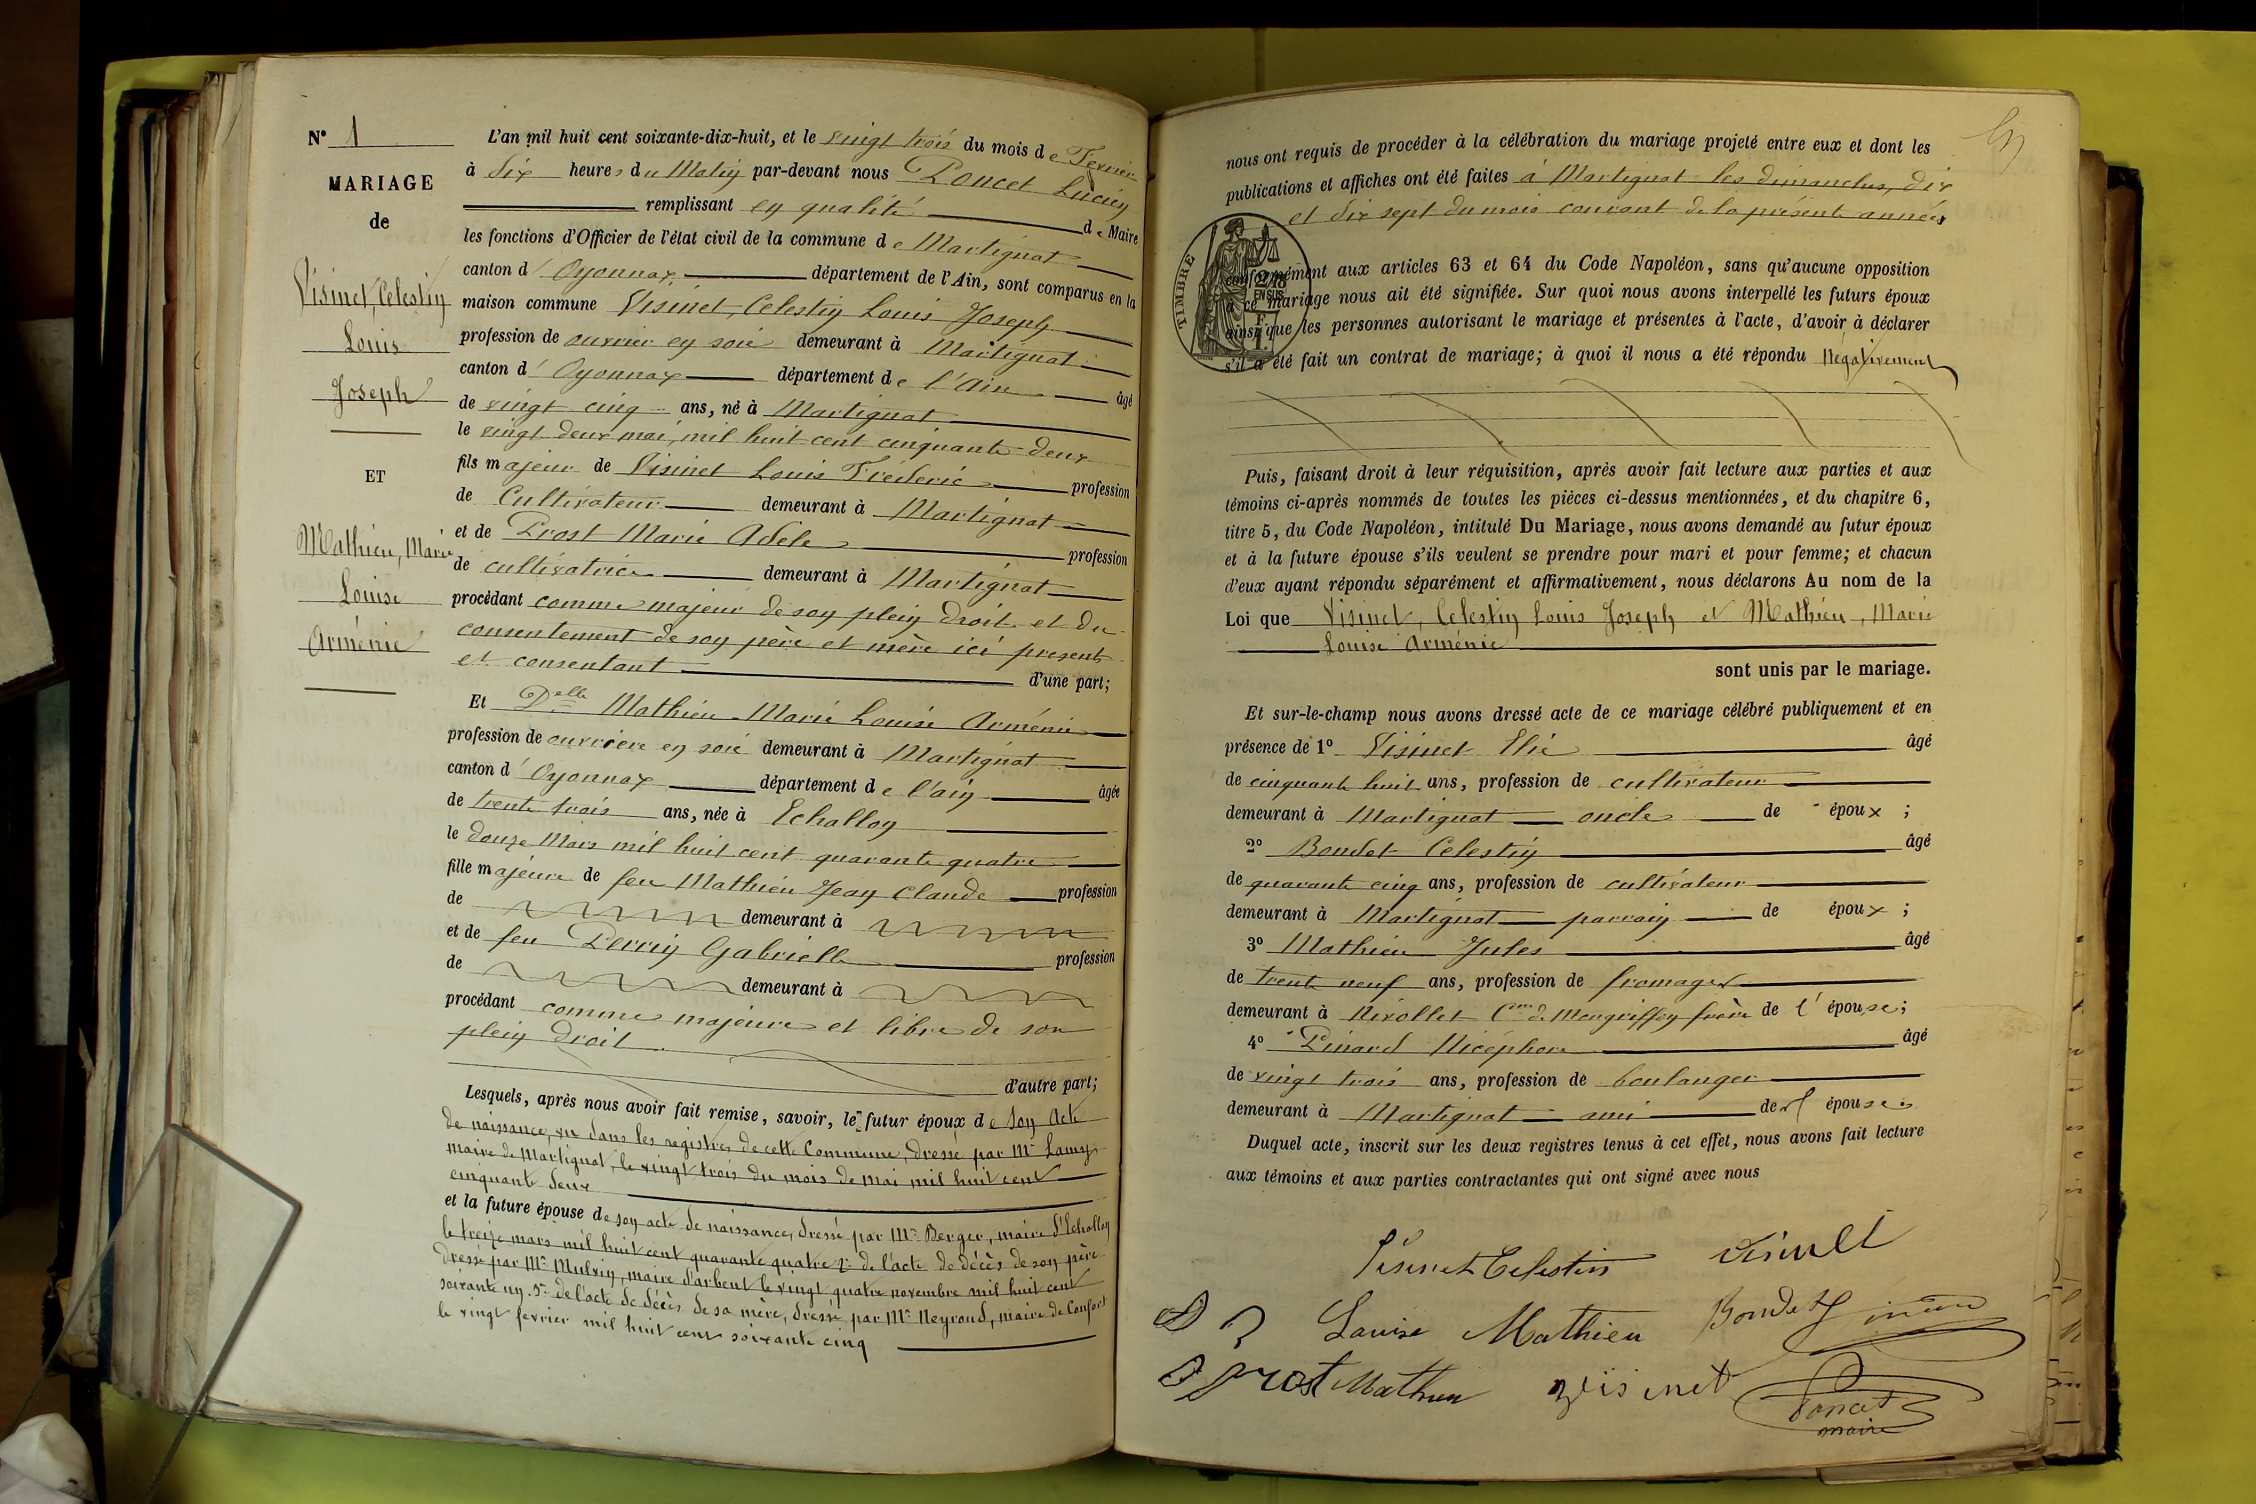 N° 1
MARIAGE
de
Visinet, Celestin
Louis
Joseph
ET
Mathieu, Marie
Louise
Arménie
L'an mil huit cent soixante-dix-huit, et le vingt trois du mois de Fevrier
à dix heures du Matin par-devant nous Poncet Lucien
remplissant en qualité de Maire
les fonctions d'Officier de l'état civil de la commune de Martignat
canton d'Oyonnax département de l'Ain, sont comparus en la
maison commune Visinet, Celestin Louis Joseph
profession de ouvrier en soie demeurant à Martignat
canton d'Oyonnax département de l'Ain âgé
de vingt cinq ans, né à Martignat
le vingt deux mai, mil huit cent cinquante deux
fils majeur de Visinet Louis Fréderic profession
de Cultivateur demeurant à Martignat
et de Prost Marie Adèle profession
de cultivatrice demeurant à Martignat
procédant comme majeur de son plein droit et du
consentement de son père et mère ici présents
et consentant d'une part;
Et Delle Mathieu Marie Louise Arménie
profession de ouvrière en soie demeurant à Martignat
canton d'Oyonnax département de l'ain âgée
de trente trois ans, née à Echallon
le douze Mars mil huit cent quarante quatre
fille majeure de feu Mathieu Jean Claude profession
de demeurant à
et de feu Perrin Gabrielle profession
de demeurant à
procédant comme majeure et libre de son
plein droit
d'autre part;
Lesquels, après nous avoir fait remise, savoir, le futur époux de son Acte
de naissance, vu dans les registres de cette Commune, dressé par Mr Lamy
maire de Martignat, le vingt trois du mois de mai mil huit cent
cinquante deux
et la future épouse de son acte de naissance, dressé par Mr Berger, maire d'Echallon
le treize mars mil huit cent quarante quatre 2° de l'acte de décès de son père
dressé par Mr Mulvin, maire d'arbent le vingt quatre novembre mil huit cent
soixante un. 3° de l'acte de décès de sa mère, dressé par Mr Neyroud, maire de Confort
le vingt fevrier mil huit cent soixante cinq
nous ont requis de procéder à la célébration du mariage projeté entre eux et dont les
publications et affiches ont été faites à Martignat les dimanches, dix
et dix sept du mois courant de la présente année
TIMBRE
conformément aux articles 63 et 64 du Code Napoléon, sans qu'aucune opposition
à ce mariage nous ait été signifiée. Sur quoi nous avons interpellé les futurs époux
ainsi que les personnes autorisant le mariage et présentes à l'acte, d'avoir à déclarer
s'il a été fait un contrat de mariage; à quoi il nous a été répondu négativement
Puis, faisant droit à leur réquisition, après avoir fait lecture aux parties et aux
témoins ci-après nommés de toutes les pièces ci-dessus mentionnées, et du chapitre 6,
titre 5, du Code Napoléon, intitulé Du Mariage, nous avons demandé au futur époux
et à la future épouse s'ils veulent se prendre pour mari et pour femme; et chacun
d'eux ayant répondu séparément et affirmativement, nous déclarons Au nom de la
Loi que Visinet, Celestin Louis Joseph et Mathieu, Marie
Louise Arménie
sont unis par le mariage.
Et sur-le-champ nous avons dressé acte de ce mariage célébré publiquement et en
présence de 1° Visinet Elie âgé
de cinquante huit ans, profession de cultivateur
demeurant à Martignat oncle de époux;
2° Bondet Celestin âgé
de quarante cinq ans, profession de cultivateur
demeurant à Martignat parrain de époux;
3° Mathieu Jules âgé
de trente neuf ans, profession de fromager
demeurant à Nivollet Cne de Mongriffon frère de l'épouse;
4° Pinard Nicéphore âgé
de vingt trois ans, profession de boulanger
demeurant à Martignat ami de l'épouse
Duquel acte, inscrit sur les deux registres tenus à cet effet, nous avons fait lecture
aux témoins et aux parties contractantes qui ont signé avec nous
Visinet Celestin Visinet
Louise Mathieu Bondet
Prost Mathieu Visinet
Poncet
maire